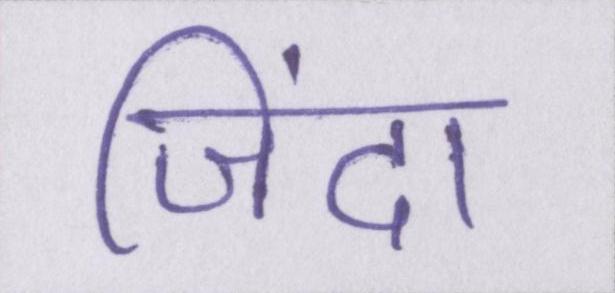 जिंदा